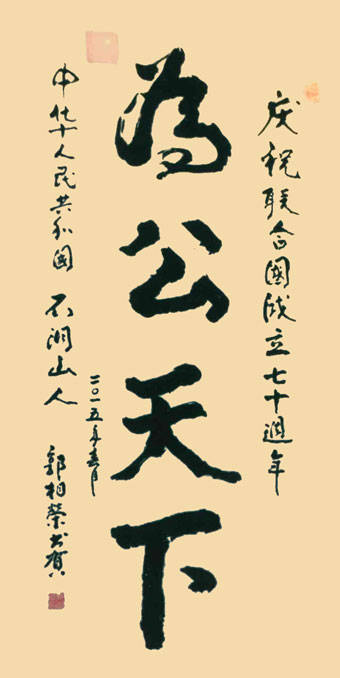 庆祝联合國成立七十週年
為公天下
二〇一五年春月
中华人民共和國 山人
郭相榮书贺